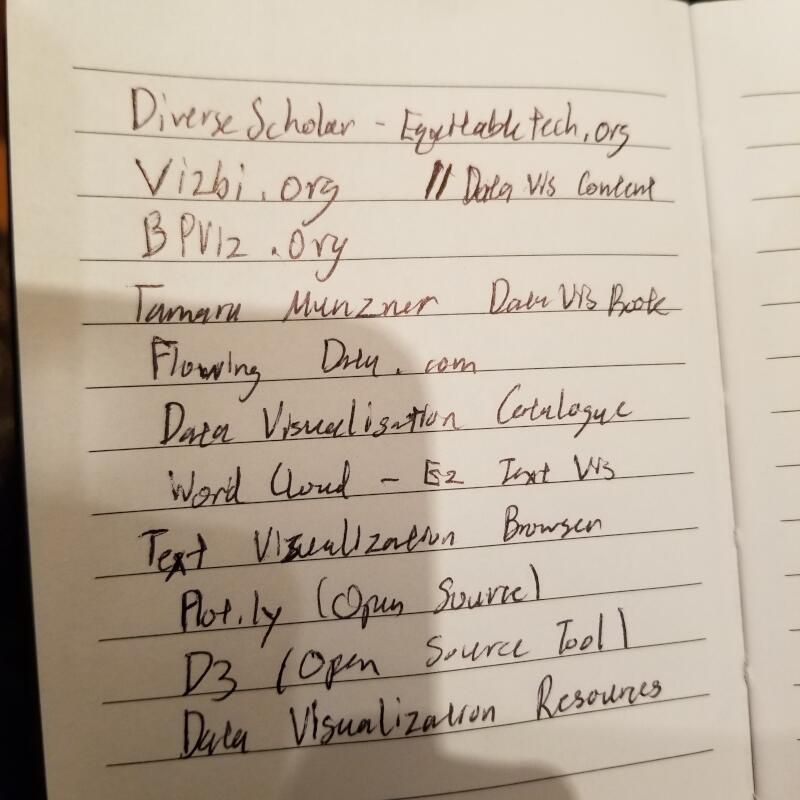 Diverse Scholar - Equitabletech.org
Vizbi.org // Data Vis Content
BPViz.org
Tamara Munzner Data Vis Book
Flowing Data.com
Data Visualisation Catalogue
Word Cloud - Ez Text Vis
Text Visualization Browser
Plot.ly (Open Source)
D3 (Open Source Tool)
Data Visualization Resources